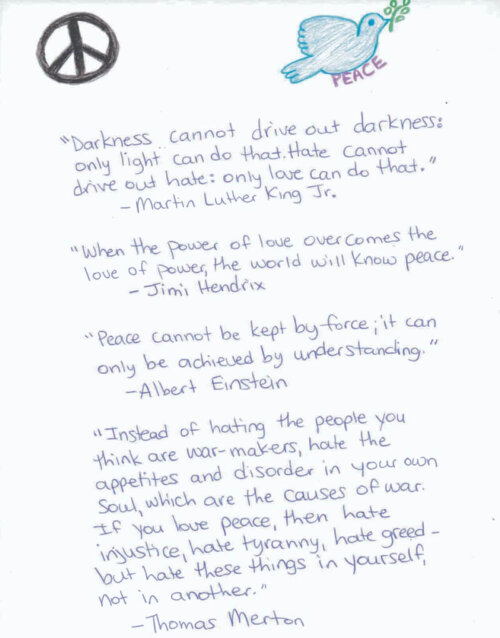 PEACE
"Darkness cannot drive out darkness:
only light can do that. Hate cannot
drive out hate: only love can do that."
- Martin Luther King Jr.
"When the power of love overcomes the
love of power, the world will know peace."
- Jimi Hendrix
"Peace cannot be kept by force; it can
only be achieved by understanding."
- Albert Einstein
"Instead of hating the people you
think are war-makers, hate the
appetites and disorder in your own
Soul, which are the causes of war.
If you love peace, then hate
injustice, hate tyranny, hate greed -
but hate these things in yourself,
not in another."
- Thomas Merton